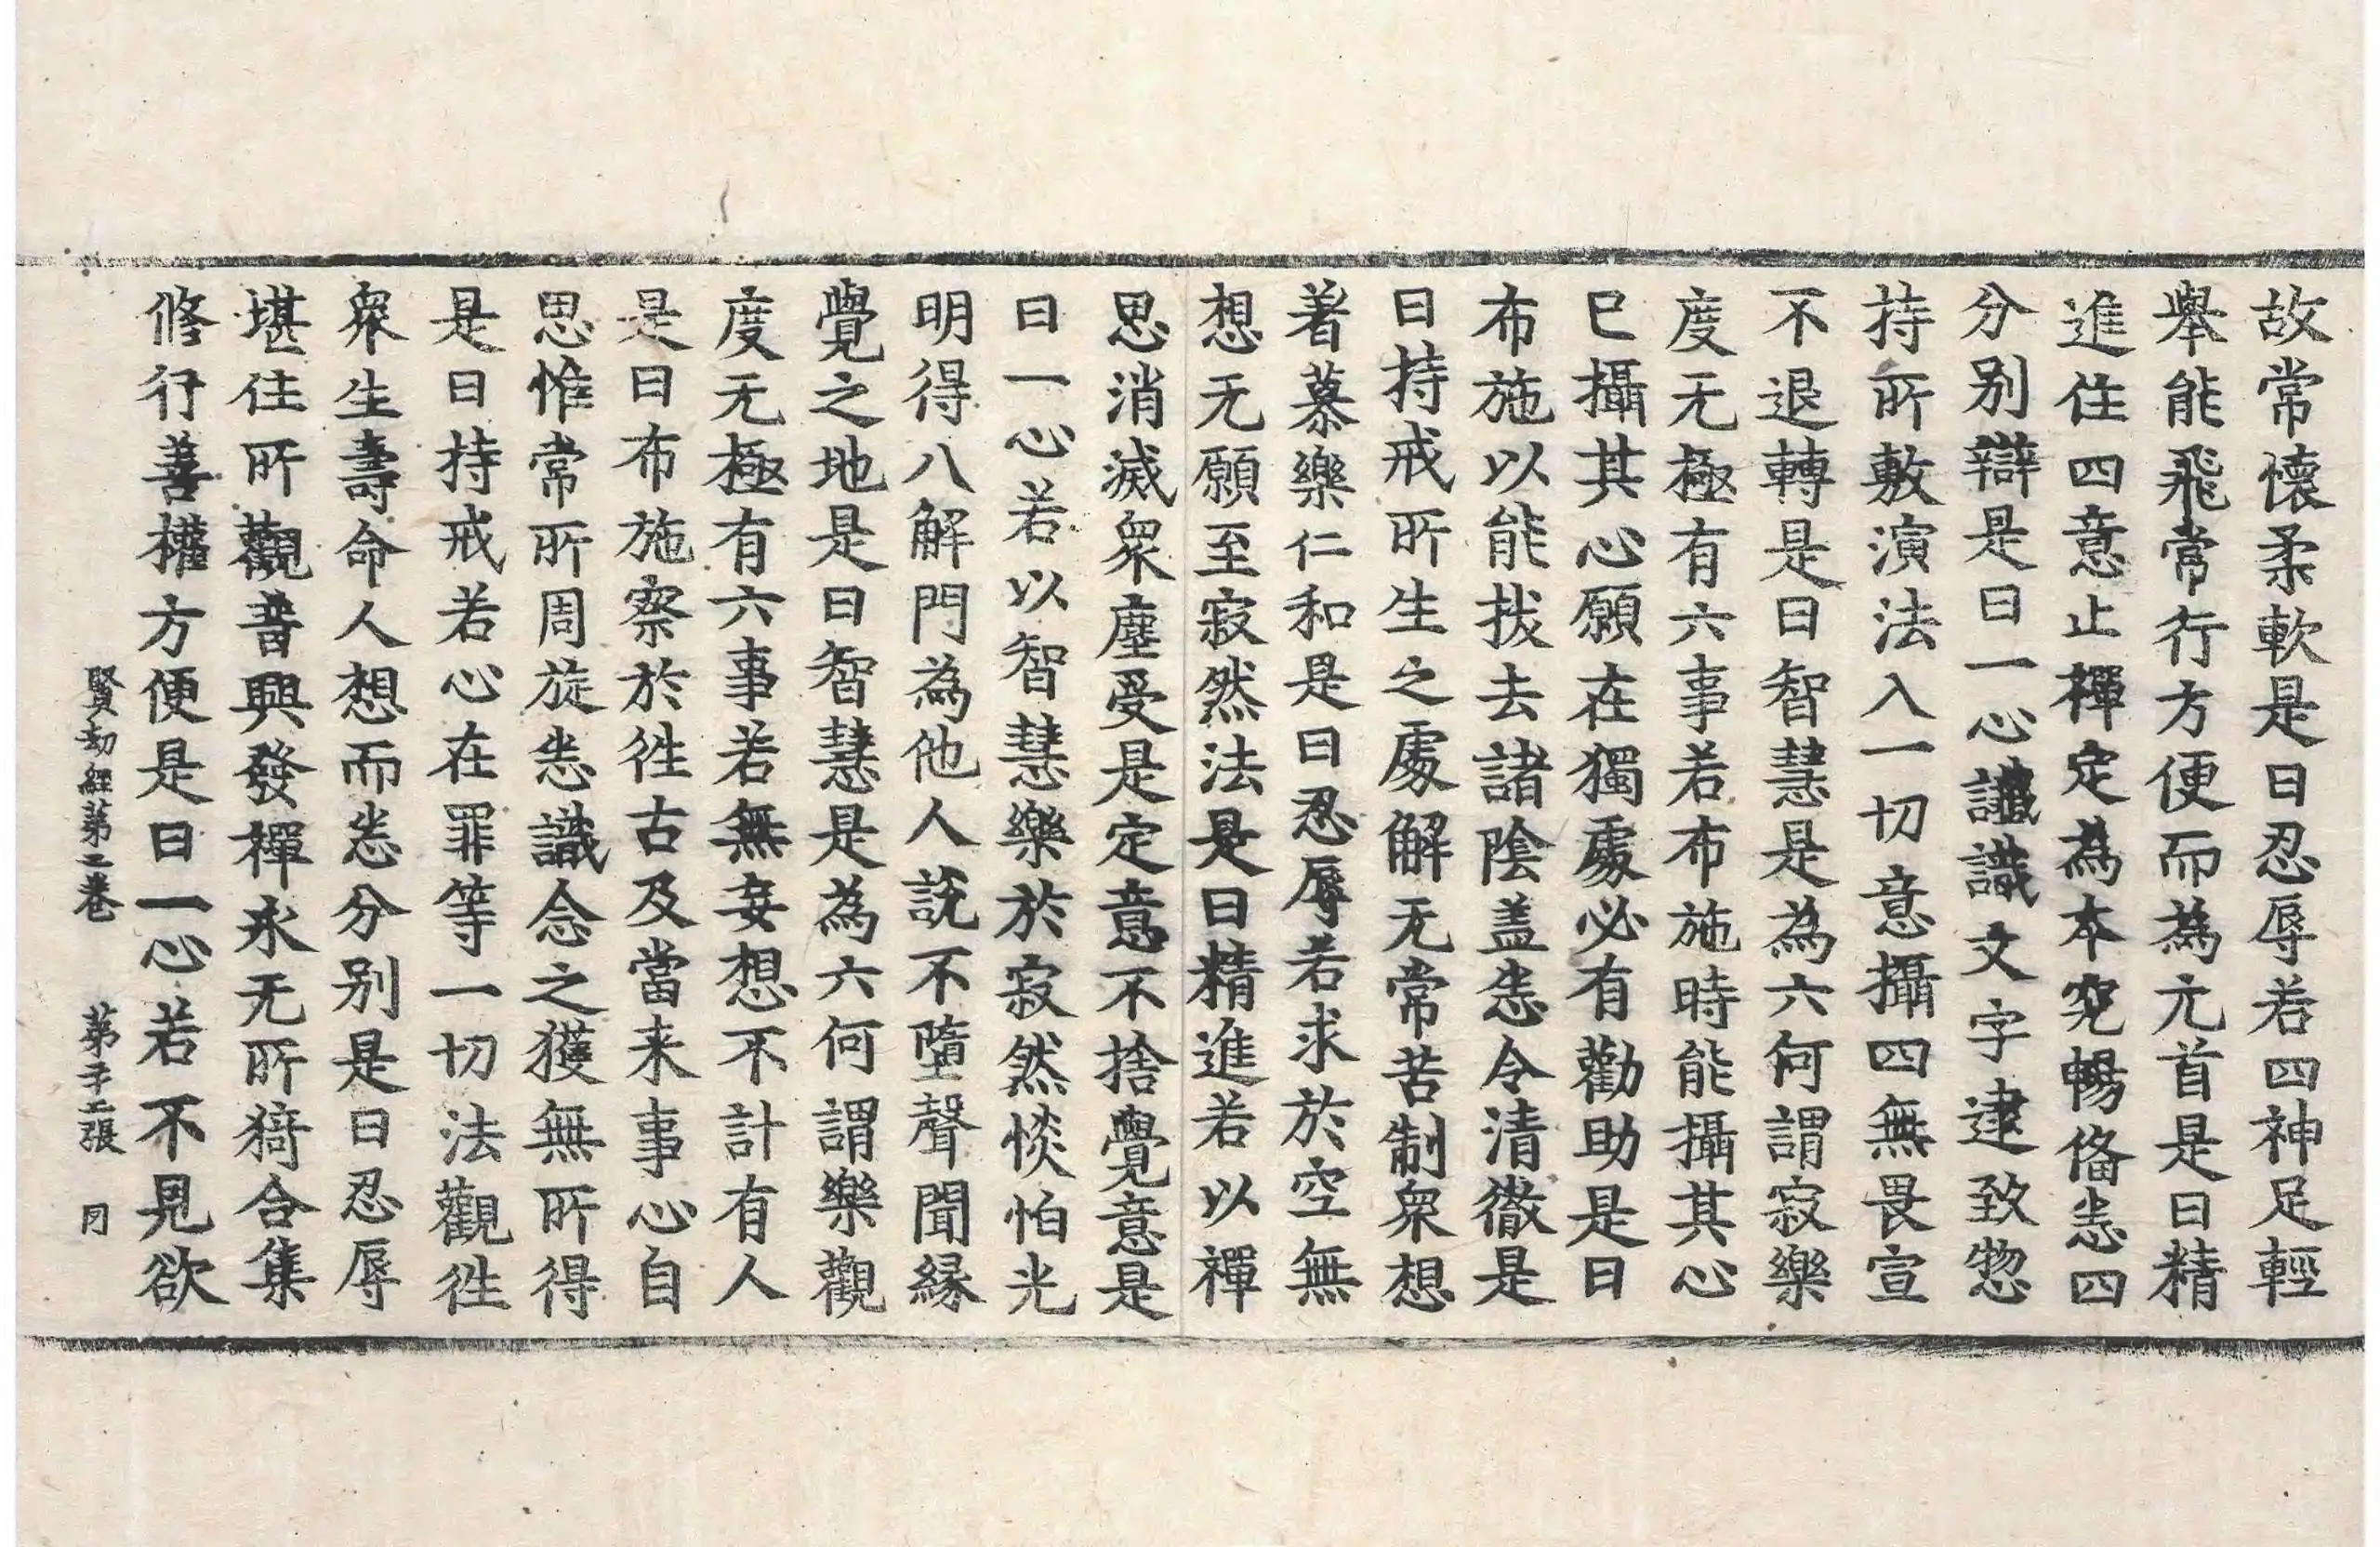 故常懷柔軟是曰忍辱若四神足輕
舉能飛常行方便而為元首是曰精
進住四意止禪定為本究暢俻悉四
分別辯是曰一心讖識文字逮致惣
持所敷演法入一切意攝四無畏宣
不退轉是曰智慧是為六何謂寂樂
度无極有六事若布施時能攝其心
已攝其心願在獨處必有勸助是曰
布施以能拔去諸陰盖悉令清徹是
曰持戒所生之處解无常苦制衆想
著慕樂仁和是曰忍辱若求於空無
想无願至寂然法是曰精進若以禪
思消滅衆塵受是定意不捨覺意是
曰一心若以智慧樂於寂然惔怕光
明得八解門為他人說不墮聲聞緣
覺之地是曰智慧是為六何謂樂觀
度无極有六事若無妄想不計有人
是曰布施察於徃古及當来事心自
思惟常所周旋悉識念之獲無所得
是曰持戒若心在罪等一切法觀徃
衆生壽命人想而悉分別是曰忍辱
堪住所觀普興發禪永无所猗合集
修行善權方便是曰一心若不見欲
賢劫經第二卷 第于二張 冃